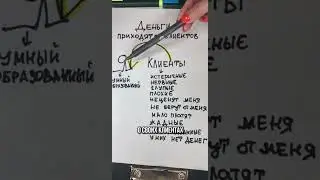 Деньги
приходят клиентов
Клиенты
умный
образованный
истеричные
нервные
глупые
плохие
не ценят меня
не берут от меня
мало платят
жадные
О СВОИХ КЛИЕНТАХ
у них нет денег